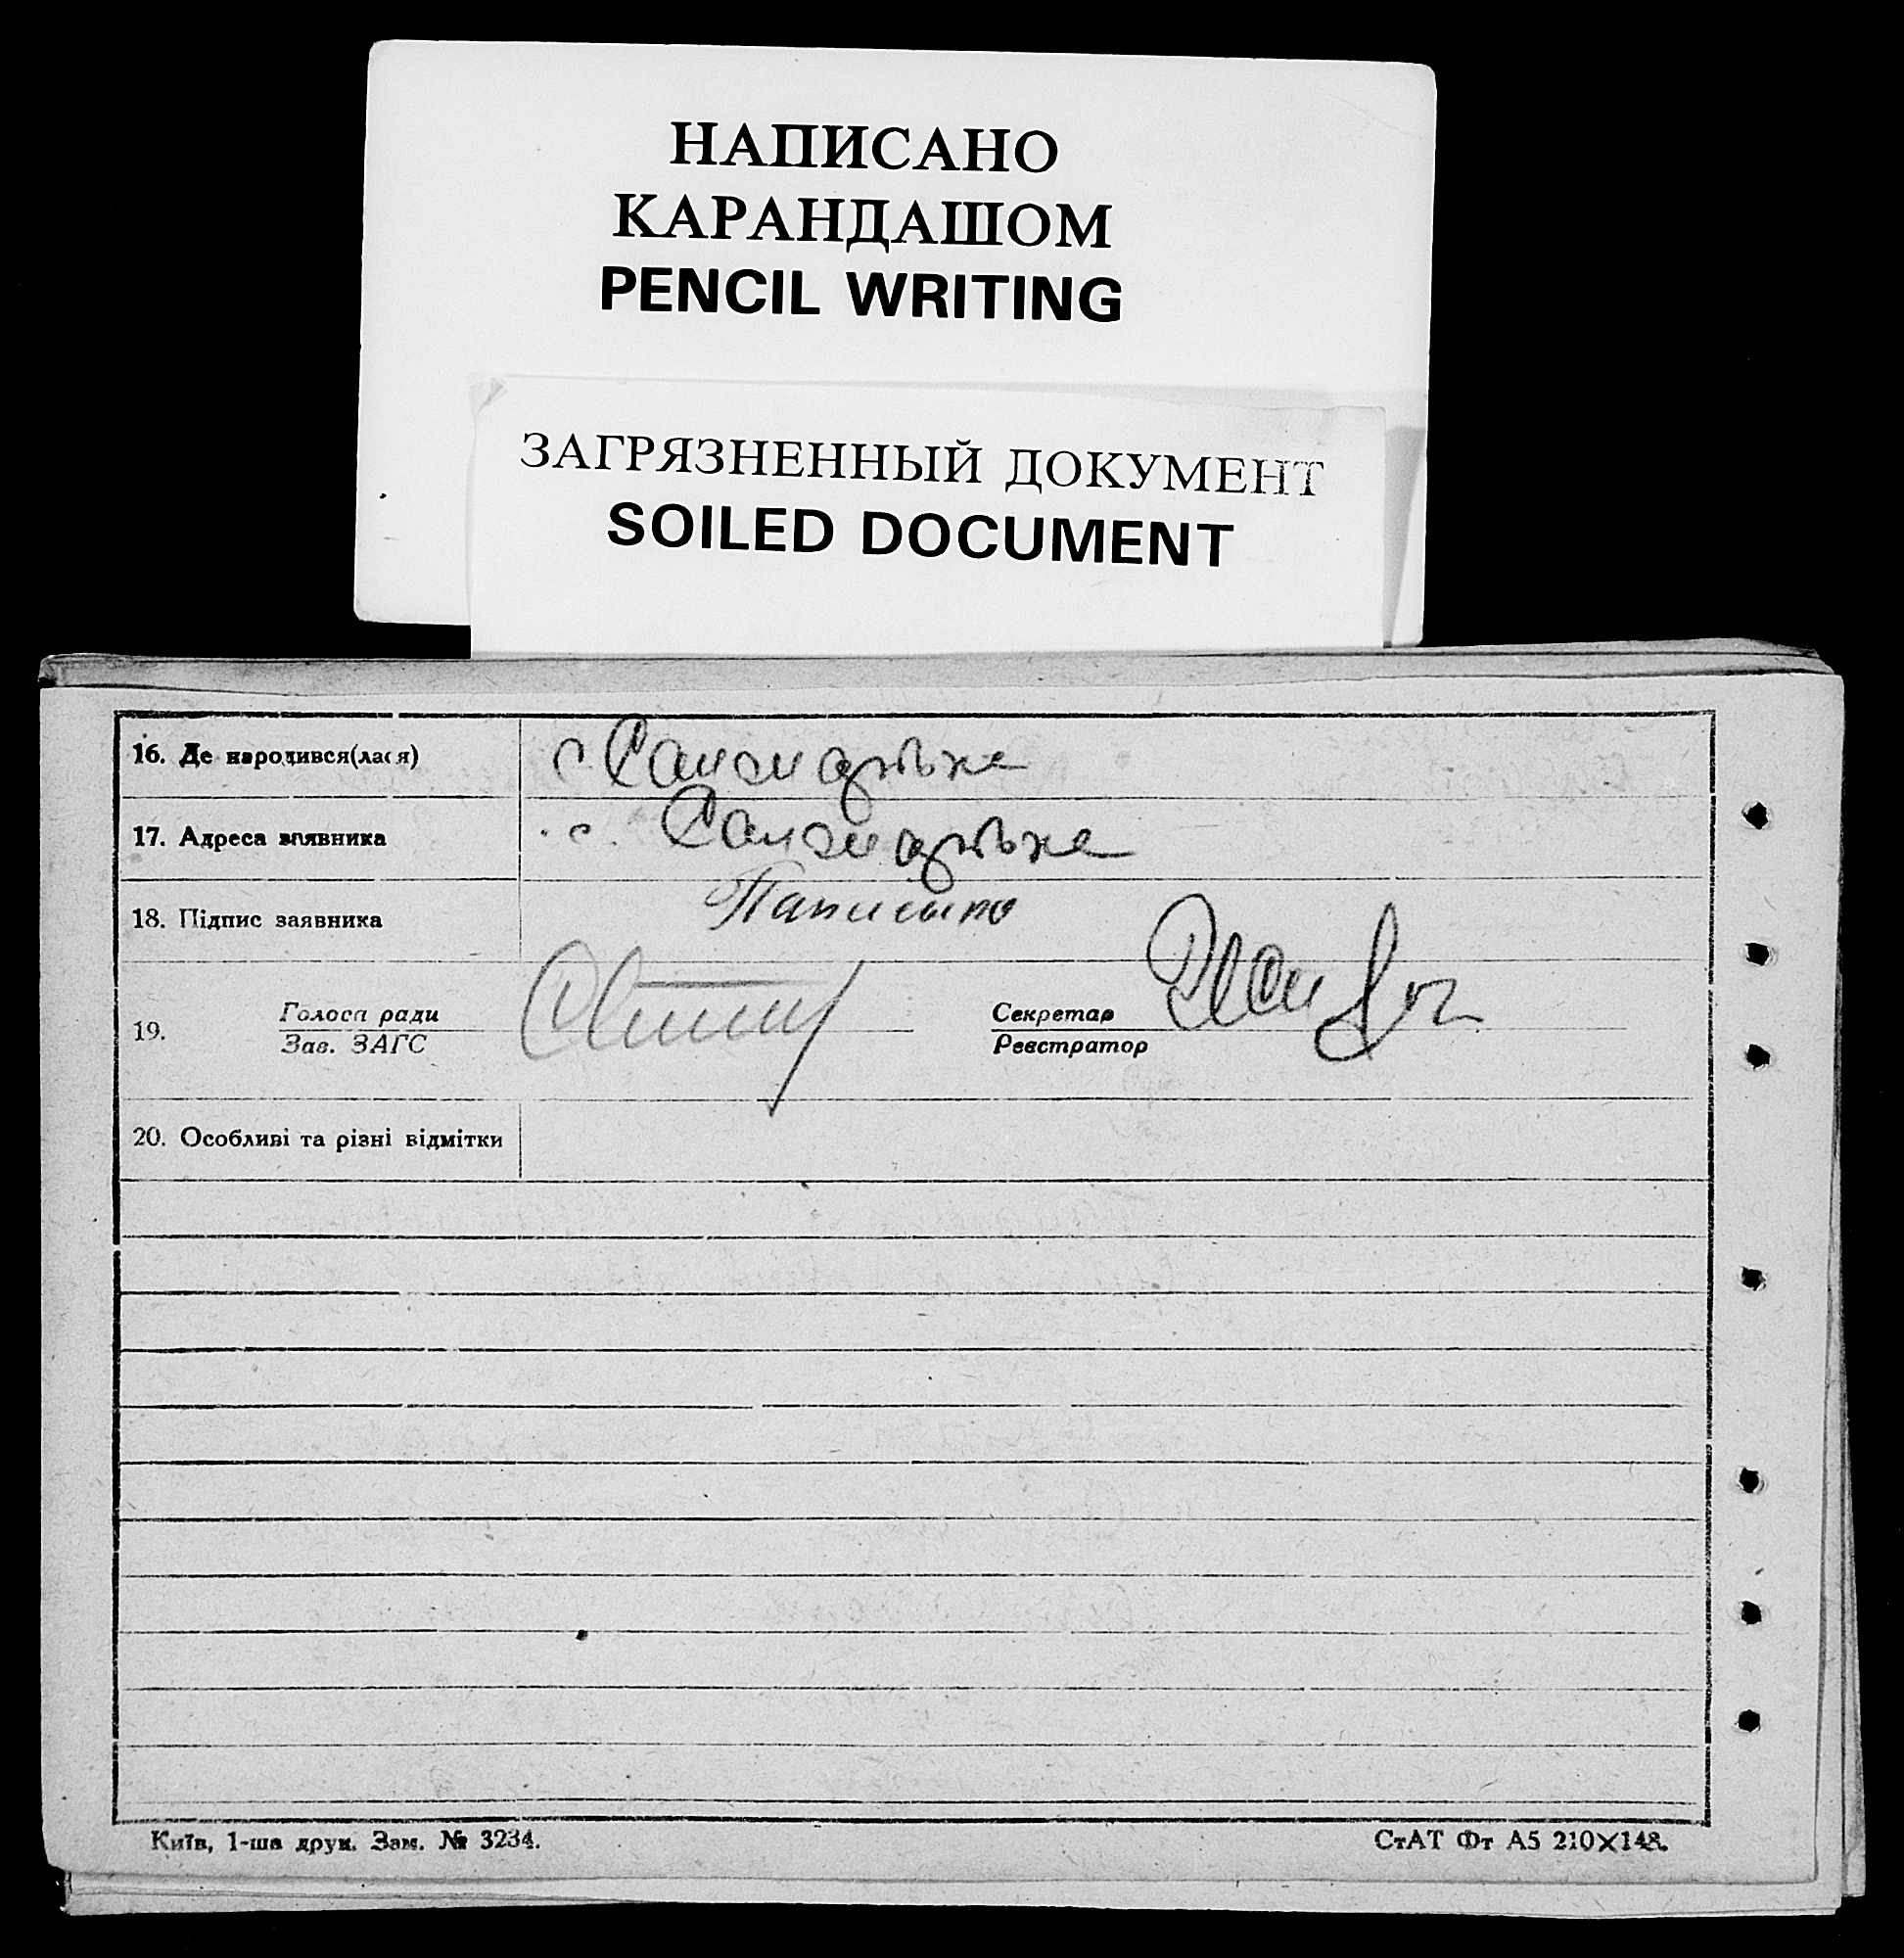 НАПИСАНО
КАРАНДАШОМ
PENCIL WRITING
ЗАГРЯЗНЕННЫЙ ДОКУМЕНТ
SOILED DOCUMENT
16. Де народився(лася) с.
17. Адреса заявника с.
18. Підпис заявника
19. Голова ради Секретар
Зав. ЗАГС Реєстратор
20. Особливі та різні відмітки
Київ, 1-ша друк. Зам. № 3234. СтАТ Фт А5 210×148.